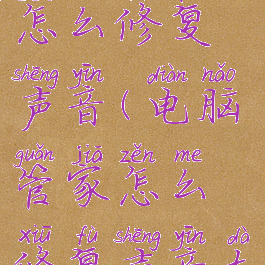 怎么修复
shēng yīn diàn nǎo
声音(电脑
guǎn jiā zěn me
管家怎么
xiū fù shēng yīn dà
修复声音大